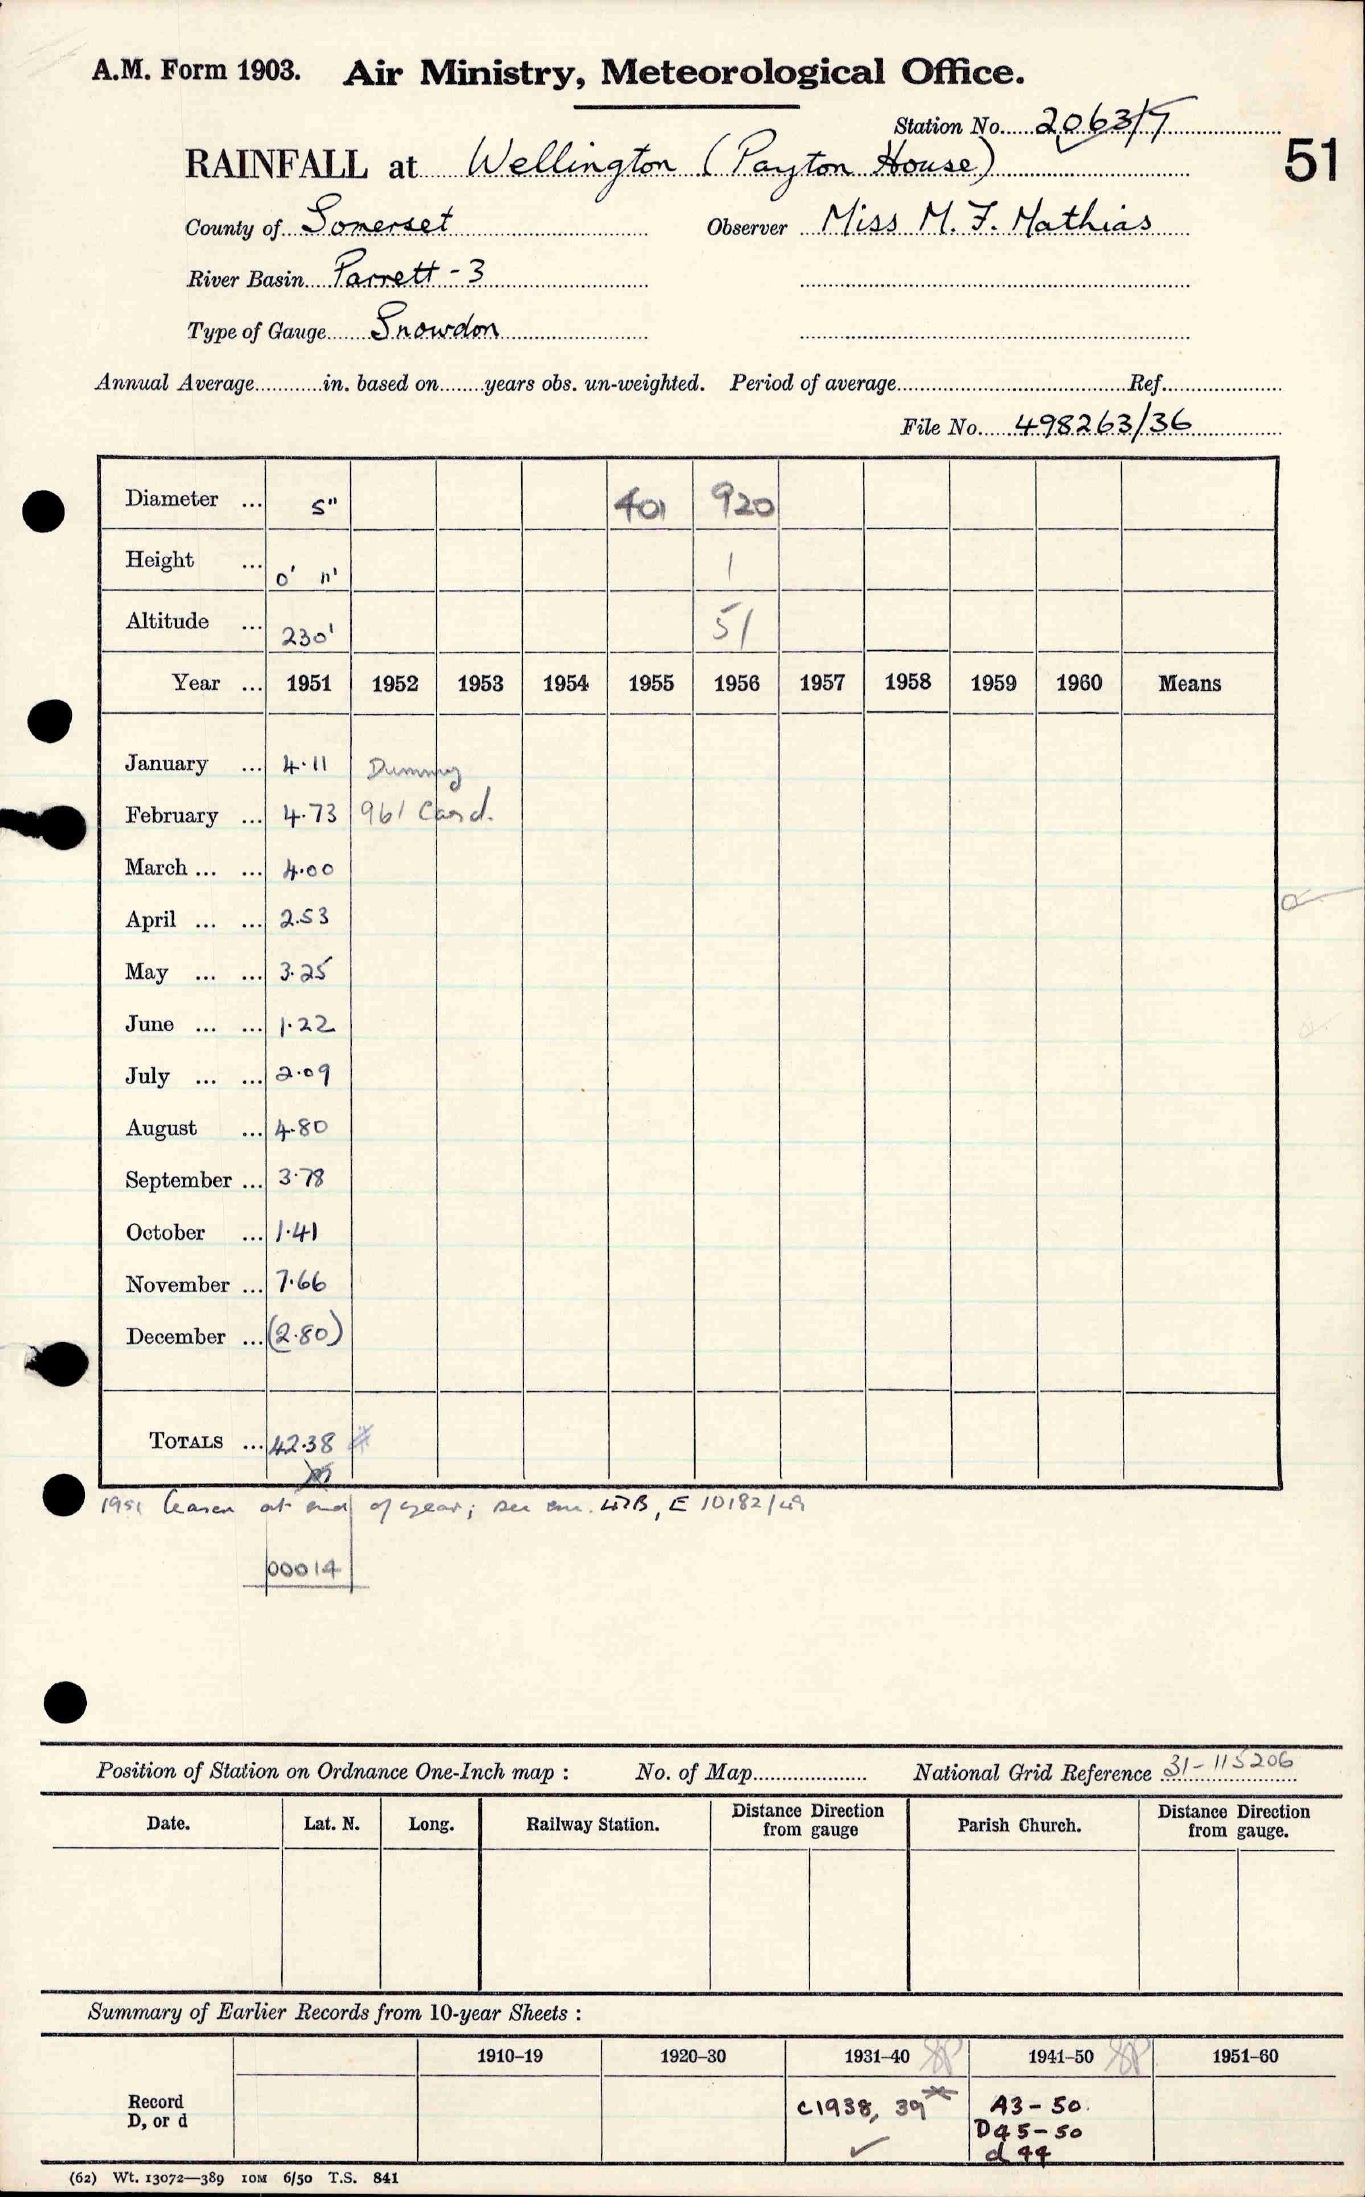 A.M. Form 1903. Air Ministry, Meteorological Office.
Station No. 2063/7
51
RAINFALL at Wellington (Payton House)
County of Somerset Observer Miss M. F. Mathias
River Basin Parrett - 3
Type of Gauge Snowdon
Annual Average in. based on years obs. un-weighted. Period of average Ref.
File No. 498263/36
Diameter ... 5" 401 920
Height ... 0' 11" 1
Altitude ... 230' 51
Year ... 1951 1952 1953 1954 1955 1956 1957 1958 1959 1960 Means
January ... 4.11 Dummy
February ... 4.73 961 Card.
March ... ... 4.00
April ... ... 2.53
May ... ... 3.25
June ... ... 1.22
July ... ... 2.09
August ... 4.80
September ... 3.78
October ... 1.41
November ... 7.66
December ... (2.80)
TOTALS ... 42.38
1951 Ceased at end of year; see E 10182/49
00014
Position of Station on Ordnance One-Inch map : No. of Map National Grid Reference 31-115206
Date. Lat. N. Long. Railway Station. Distance Direction from gauge Parish Church. Distance Direction from gauge.
Summary of Earlier Records from 10-year Sheets :
1910–19 1920–30 1931–40 1941–50 1951–60
Record D, or d c1938, 39 A3-50
D45-50
d 44
(62) Wt. 13072—389 10M 6/50 T.S. 841